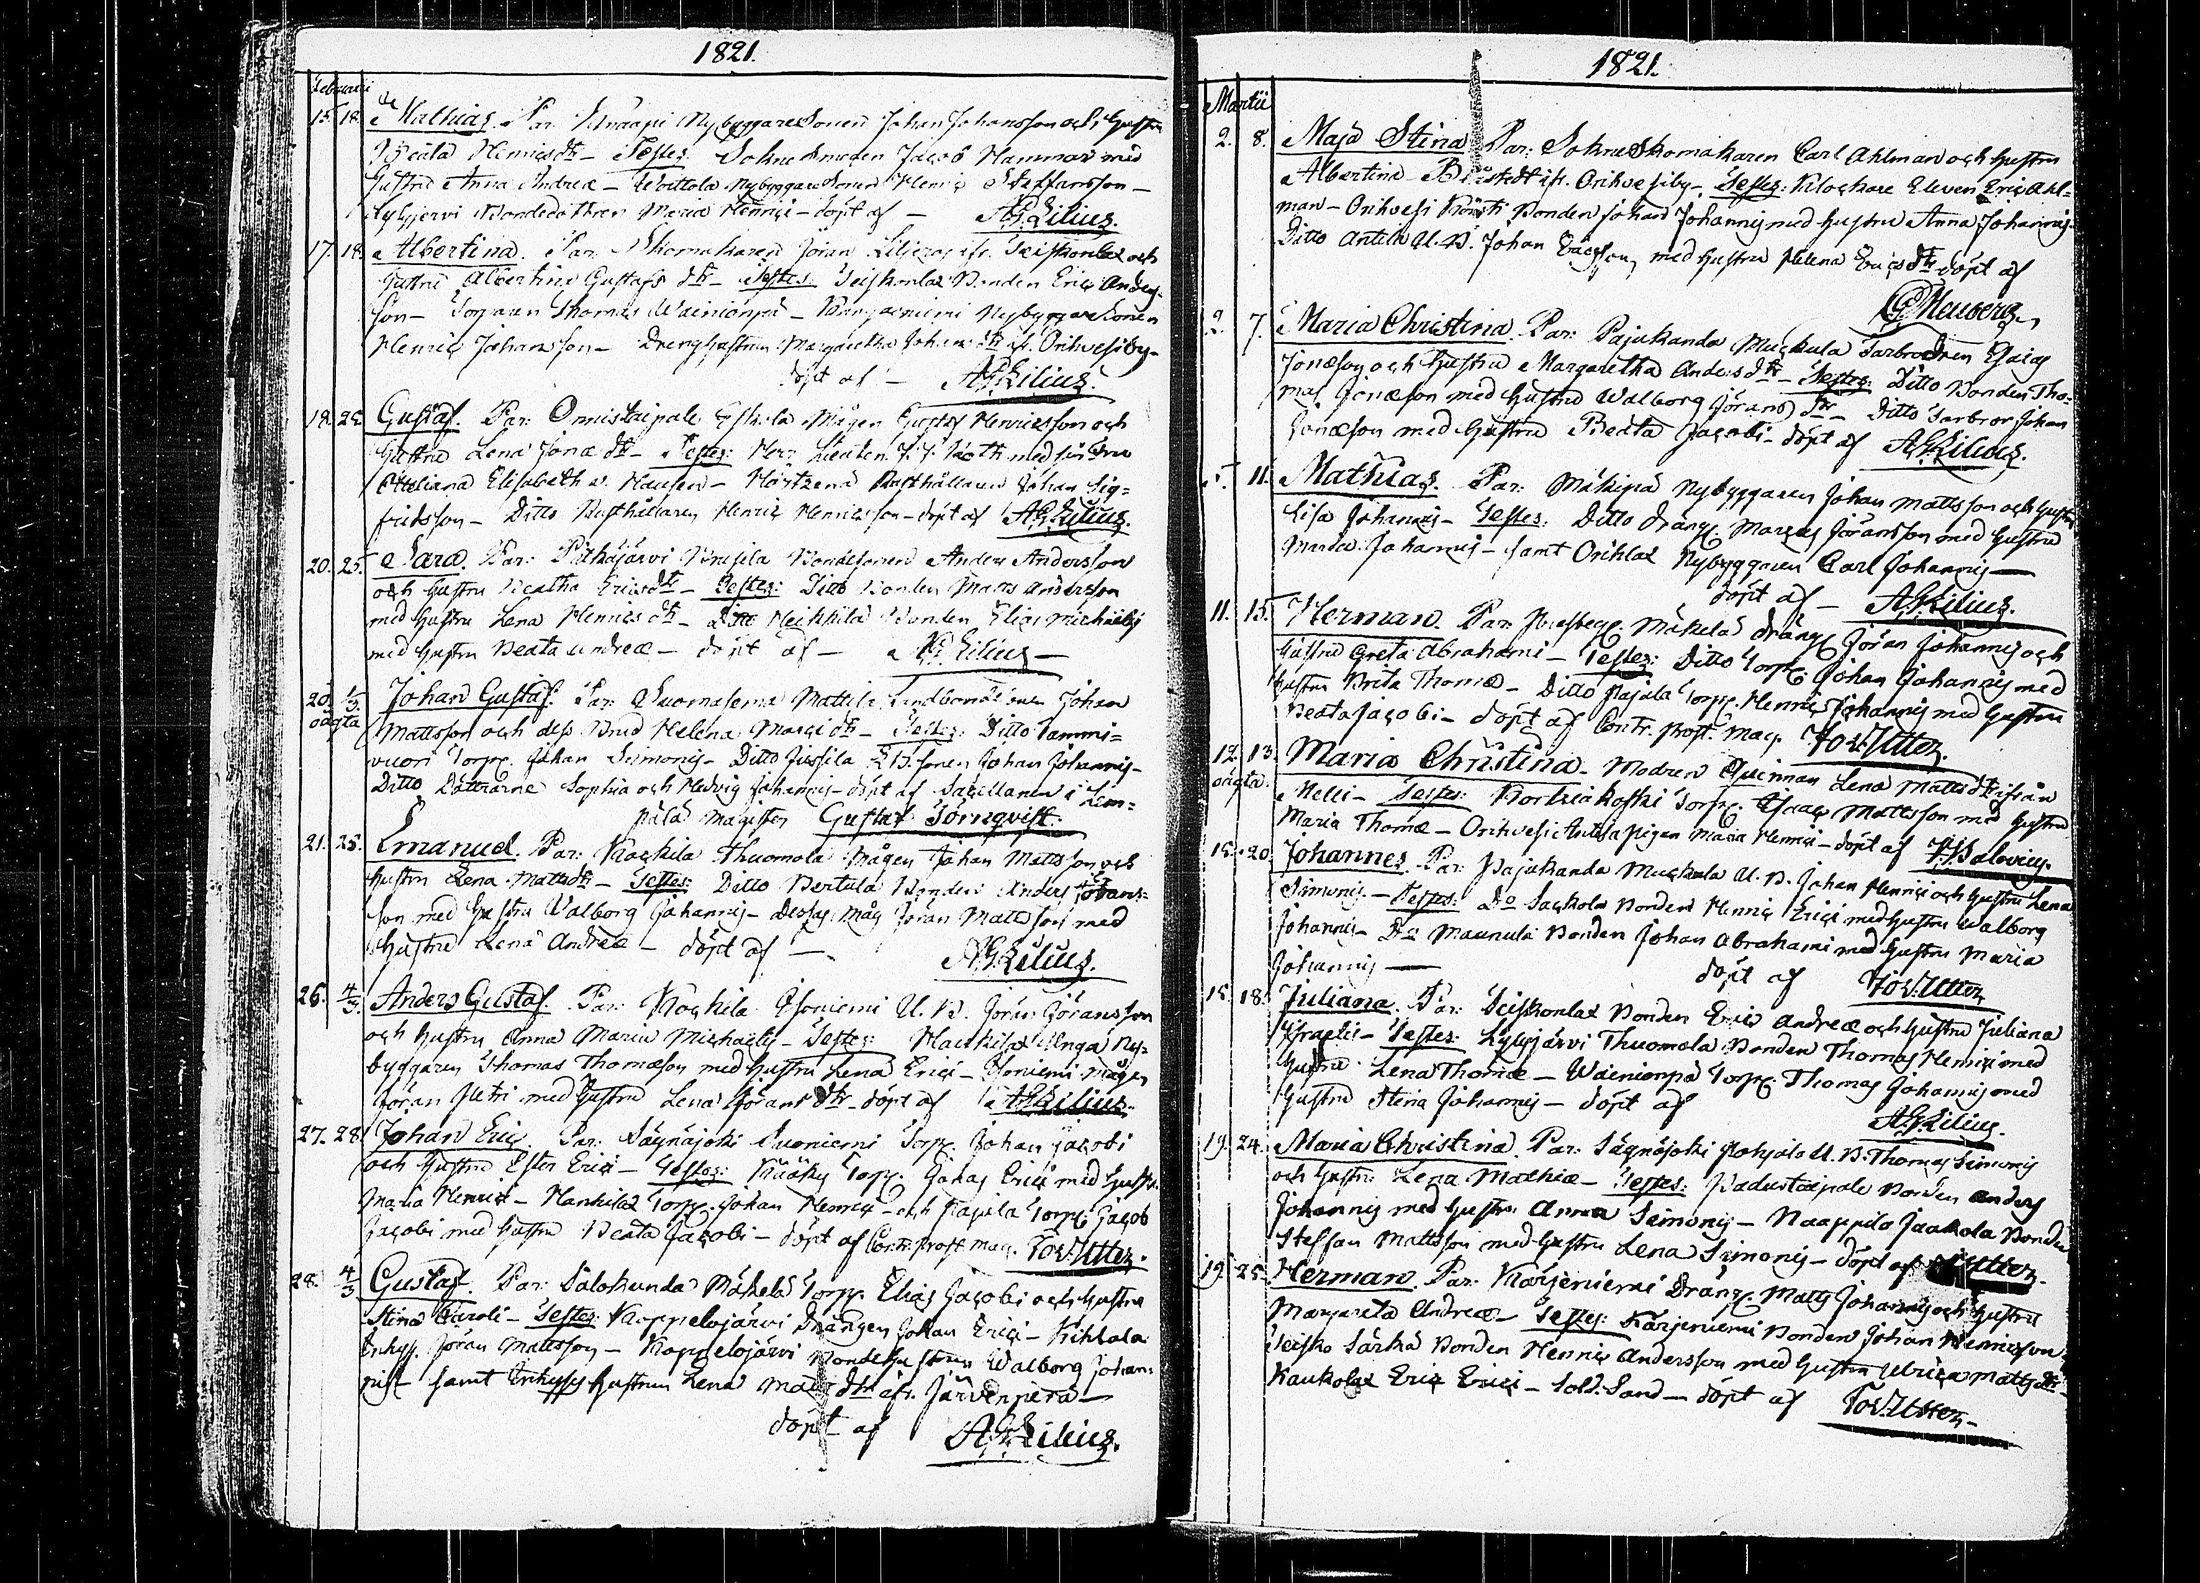 1821.
Februarii
15. 18. Mathias. Par: Knaapi Nybyggaresonen Johan Johansson och Hustru
Beata Henricsdtr – Testes: Sokneknegen Jacob Hammar med
Hustru Anna Andreæ – Woittola Nybyggaresonen Henric Staffansson –
Lyhyjervi Bondedottren Maria Henrici – döpt af – A.G. Lilius.
17. 18. Albertina. Par: Skomakaren Jöran ifr. Seiskonlax och
Hustru Albertina Gustafs dtr – Testes: Seiskonlax Bonden Eric Anders-
son – Torparen Thomas Wäinionpä – Nybyggaresonen
Henric Johansson – Drenghustrun Margaretha Johans dtr ifr. Orihvesiby –
döpt af – A.G. Lilius.
18. 25. Gustaf. Par: Onnistaipale Eskola Mågen Gustaf Henricsson och
Hustru Lena Jonæ dtr – Testes: Herr Lieuten: med sin Fru
Ottiliana Elisabeth v. Hausen – Rusthållaren Johan Sig=
fridsson – Ditto Rusthållaren Henric Henricsson – döpt af A.G. Lilius.
20. 25. Sara. Par: Pitkäjärvi Bondesonen Anders Andersson
och Hustru Ericsdtr – Testes: Ditto Bonden Matts Andersson
med Hustru Lena Henrics dtr – Ditto Heikkilä Bonden Elias Michaelis
med Hustru Beata Andreæ – döpt af – A.G. Lilius –
20. 1/3 Johan Gustaf. Par: Suomasema Mattila Landbondesonen Johan
oägta Mattsson och dess Brud Helena Marci dtr – Testes: Ditto Tammi=
vuori Torp. Johan Simonis – Ditto Jussila L.B. sonen Johan Johannis –
Ditto Döttrarne Sophia och Hedvig Johannis – döpt af Sacellanen i Lem=
pälä Magister Gustaf Törnqvist.
21. 25. Emanuel. Par: Kockila Thuomola Mågen Johan Mattsson och
Hustru Lena Mattsdtr – Testes: Ditto Bertula Bonden Anders Jörans-
son med Hustru Walborg Johannis – Dessas Måg Jöran Mattsson med
Hustru Lena Andreæ – döpt af – A.G. Lilius.
26. 4/3 Anders Gustaf. Par: Kockila Isoniemi U.B. Jöran Göransson
och Hustru Anna Maria Michaelis – Testes: Haukila Unga Ny-
byggaren Thomas Thomæson med Hustru Lena Erici – Isoniemi Mågen
Jöran Petri med Hustru Lena Görans dtr – döpt af A.G. Lilius.
27. 28. Johan Eric. Par: Sägnäjoki Suoniemi Torp. Johan Jacobi
och Hustru Ester Erici – Testes: Torp. Johan Erici med Hustr.
Maria Henrici – Haukilax Torp. Johan Henrici – och Pajula Torp. Jacob
Jacobi med Hustru Beata Jacobi – döpt af Contr. Prost. Mag. Fo v. Utter.
28. 4/3 Gustaf. Par: Salokunda Mäkelä Torp. Elias Jacobi och Hustru
Stina Caroli – Testes: Kappelojärvi Drängen Johan Erici –
Inhys. Jöran Mattsson – Kappelojärvi Bondehustrun Walborg Johan-
nis – samt Inhyses hustrun Lena Matts dtr ifr. Järvenpera –
döpt af A.G. Lilius.
1821.
Martii
2. 8. Maja Stina Par: Sokneskomakaren Carl Ahlman och Hustru
Albertina ifr. Orihvesiby – Testes: Klockare Eleven Eric Ahl=
man – Orihvesi Bonden Johan Johannis med Hustru Anna Johannis –
Ditto Antila U.B. Johan Ericsson, med Hustru Helena Erics dtr döpt af
G. Meuberg.
2. 7. Maria Christina. Par: Pajukanda Muckula Farbrodren Esaias
Jonæson och Hustru Margaretha Anders dtr – Testes: Ditto Bonden Tho=
mas Jonæson med Hustru Walborg Jörans dtr – Ditto Farbror Johan
Jonæson med Hustru Beata Jacobi – döpt af A.G. Lilius.
11. Mathias. Par: Mäkipä Nybyggaren Johan Mattsson och Hustru
Lisa Johannis – Testes: Ditto Dräng. Marcus Jöransson med Hustru
Maria Johannis – samt Orihlax Nybyggaren Carl Johannis –
döpt af – A.G. Lilius.
11. 15. Herman. Par: Mäkelä Dräng. Jöran Johannis och
Hustru Greta Abrahami – Testes: Ditto Torp. Johan Johannis med
Hustru Brita Thomæ – Ditto Pajula Torp. Henric Johannis med Hustru
Beata Jacobi – döpt af Contr. Prost. Mag. Fo v. Utter.
12. 13. Maria Christina – Modren Qvinnan Lena Matts dtr ifrån
oägta. Nelli – Testes: Kortziakoski Torp. Isaac Mattsson med Hustru
Maria Thomæ – Orihvesi Antila pigan Maria Henrici – döpt af
15. 20. Johannes. Par: Pajukanda Muckula U.B. Johan Henrici och Hustru Lena
Simonis – Testes: Do Sackola Bonden Henric Erici med Hustru Walborg
Johannis – Do Maunula Bonden Johan Abrahami med Hustru Maria
Johannis – döpt af Fo v. Utter
15. 18. Juliana. Par: Seiskonlax Bonden Eric Andreæ och Hustru Juliana
Israelis – Testes: Lyhyjärvi Thuomola Bonden Thomas Henrici med
Hustru Lena Thomæ – Wäinionpä Torp. Thomas Johannis med
Hustru Stina Johannis – döpt af A.G. Lilius.
19. 24. Maria Christina. Par: Sägnäjoki Pohjala U.B. Thomas Simonis
och Hustru Lena Mathiæ – Testes: Padustaipale Bonden Anders
Johannis med Hustru Anna Simonis – Naappila Jaakola Bonden
Steffan Mattsson med Hustru Lena Simonis – döpt af Utter.
19. 25. Herman. Par: Karjeniemi Dräng. Matts Johannis och Hustru
Margareta Andreæ – Testes: Karjeniemi Bonden Johan Henricsson,
Seisko Särkä Bonden Henric Andersson med Hustru Ulrica Matts dtr –
Kaukolax Eric Erici – Sold. Sand – döpt af Fo v. Utter –